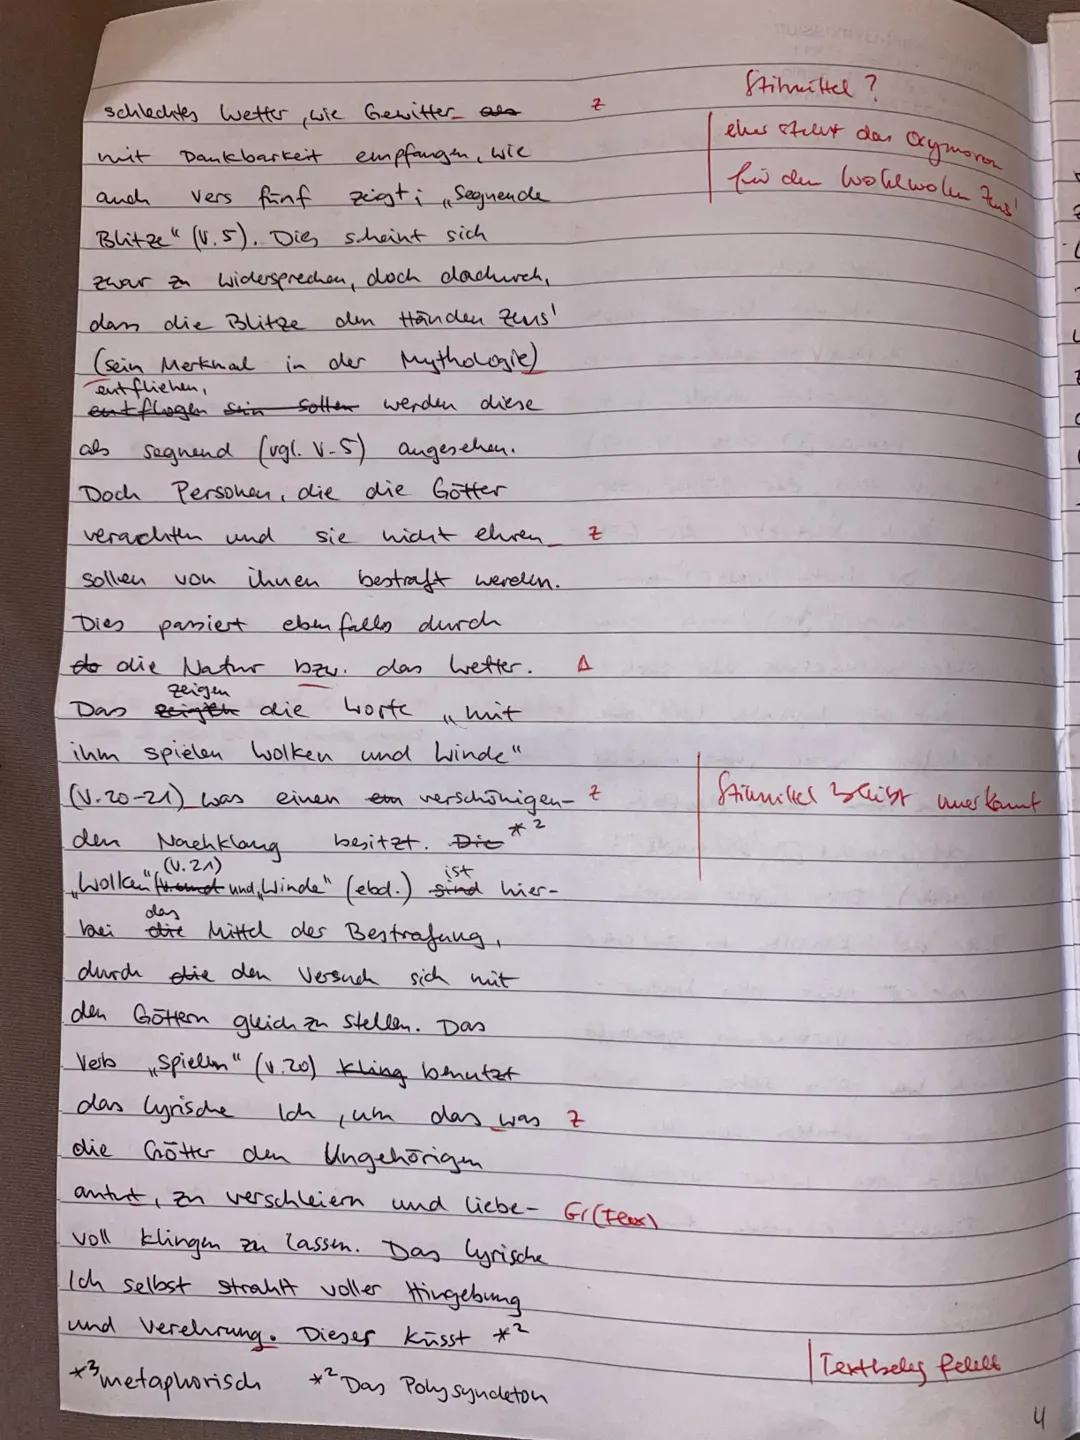 Stilmittel?
schlechtes Wetter, wie Gewitter als Z
eher steht das Oxymoron
mit Dankbarkeit empfangen, wie
für den Wohlwollen Zeus'
auch Vers fünf zeigt: „Segnende
Blitze" (V.5). Dies scheint sich
zwar zu widersprechen, doch dadurch,
dass die Blitze den Händen Zeus'
(sein Merkmal in der Mythologie)
entfliehen,
entflogen sein sollen werden diese
als segnend (vgl. V.5) angesehen.
Doch Personen, die die Götter
verachten und sie nicht ehren Z
sollen von ihnen bestraft werden.
Dies passiert ebenfalls durch
do die Natur bzw. das Wetter. A
zeigen
Das die Worte „mit
ihm spielen Wolken und Winde"
(V.20-21) was einen ein verschönigen- Z
Stilmittel bleibt unerkannt
den Nachklang besitzt. Die *2
(V.21) ist
„Wolken" und „Winde" (ebd.) sind hier-
das
bei die Mittel der Bestrafung,
durch die den Versuch sich mit
den Göttern gleich zu stellen. Das
Verb „spielen" (V.20) kling benutzt
das lyrische Ich, um das was Z
die Götter den Ungehörigen
antut, zu verschleiern und liebe- Gr(Flex)
voll klingen zu lassen. Das lyrische
Ich selbst strahlt voller Hingebung
und Verehrung. Dieses küsst *2
Textbeleg fehlt
*3 metaphorisch *2 Das Polysyndeton
4